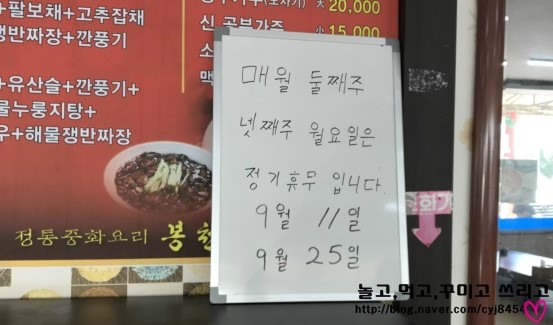 +팔보채+고추잡채
쟁반짜장+깐풍기
+유산슬+깐풍기+
물누룽지탕+
우+해물쟁반짜장
大 20,000
신 공부가주 小 15,000
소
맥
매월 둘째주
넷째주 월요일은
정기휴무 입니다.
9월 11일
9월 25일
정통중화요리 봉
놀고,먹고,꾸미고 쓰리고
http://blog.naver.com/cyj8454